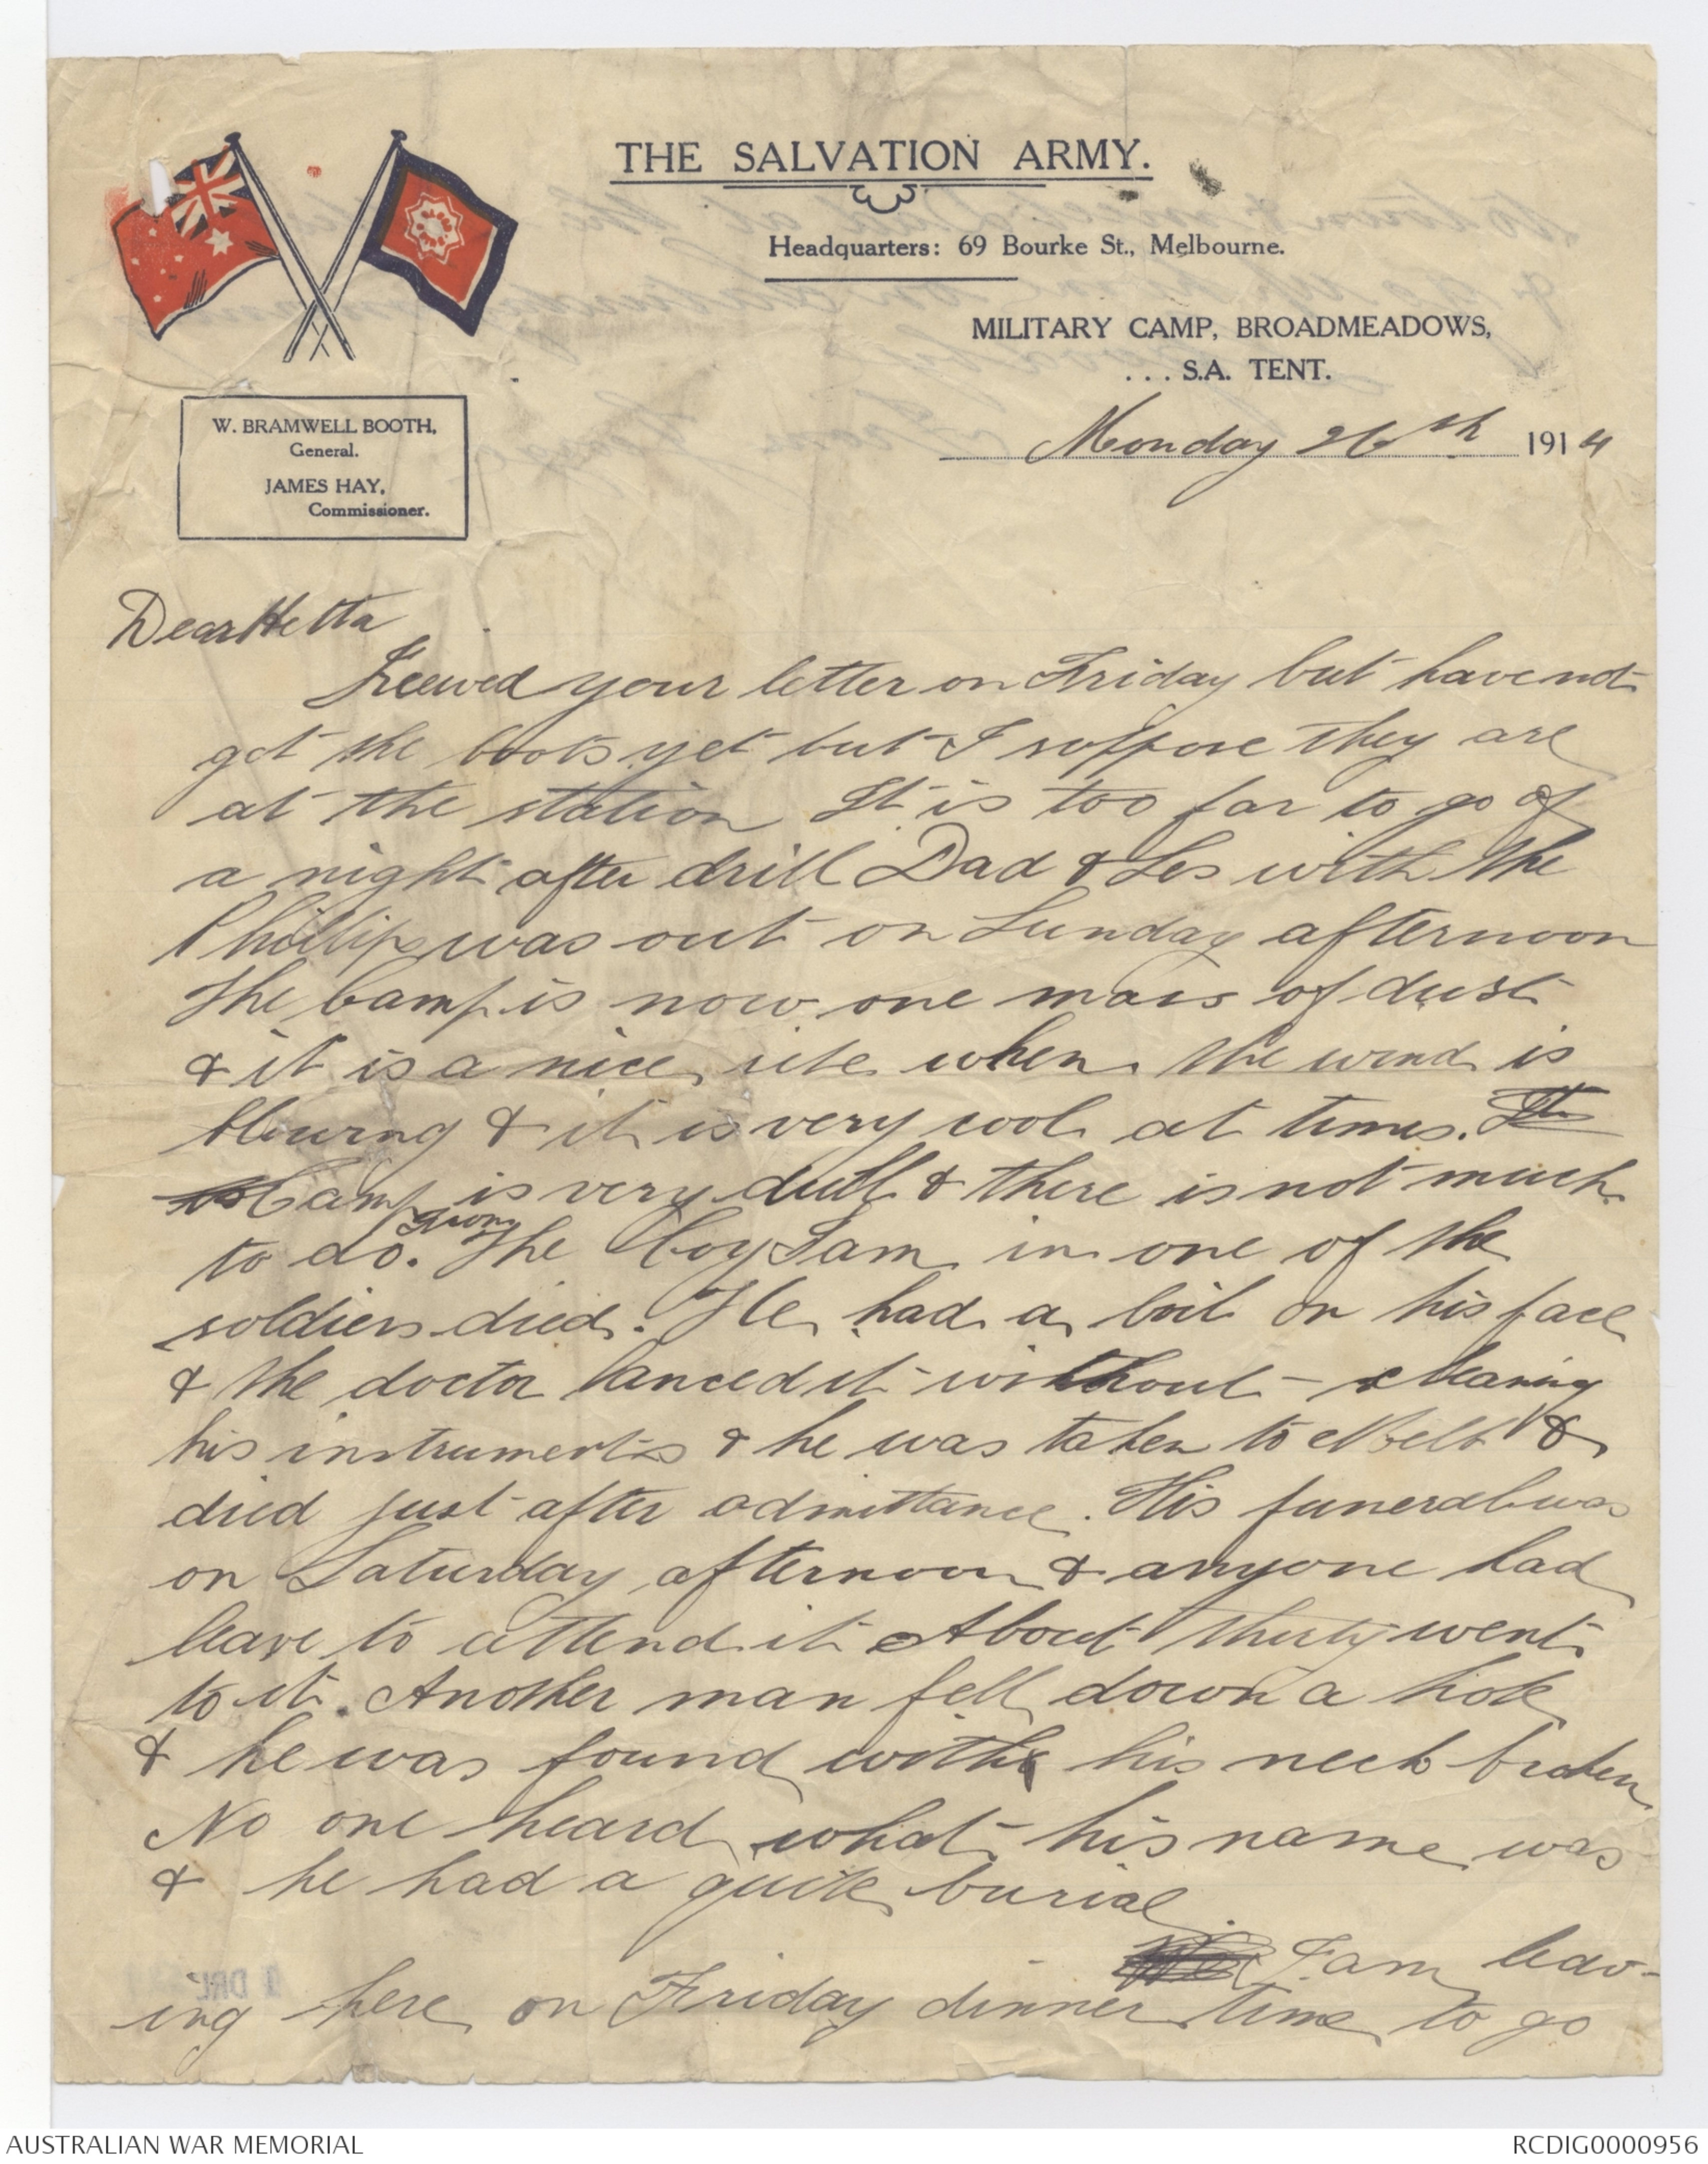 THE SALVATION ARMY.
Headquarters: 69 Bourke St., Melbourne.
MILITARY CAMP, BROADMEADOWS,
... S.A. TENT.
Monday 26th 1914
W. BRAMWELL BOOTH,
General.
JAMES HAY,
Commissioner.
Dear Hetta
Received your letter on Friday but have not
got the boots yet but I suppose they are
at the station It is too far to go of
a night after drill Dad & Les with the
Phillips was out on Sunday afternoon
The Camp is now one mass of dust
& it is a nice site when the wind is
blowing & it is very cool at times. It
is Camp is very dull & there is not much
to do. The Coy I am in one of the
soldiers died. He had a boil on his face
& the doctor lanced it without cleaning
his instruments & he was taken to Melb &
died just after admittance. His funeral was
on Saturday afternoon & anyone had
leave to attend it About thirty went
to it. Another man fell down a hole
& he was found with his neck broken
No one heard what his name was
& he had a quite burial.
I am leav-
ing here on Friday dinner time to go
1 DRL
AUSTRALIAN WAR MEMORIAL
RCDIG0000956